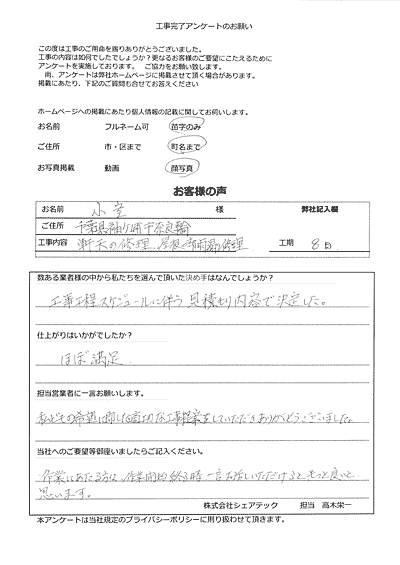 工事完了アンケートのお願い
この度は工事のご用命を賜りありがとうございました。
工事の内容は如何でしたでしょうか？更なるお客様のご要望にこたえるために
アンケートを実施しております。 ご協力をお願い致します。
尚、アンケートは弊社ホームページに掲載させて頂く場合があります。
掲載にあたり、下記のご質問も合せてお答えください
ホームページへの掲載にあたり個人情報の記載に関してお伺いします。
お名前 フルネーム可 苗字のみ
ご住所 市・区まで 町名まで
お写真掲載 動画 顔写真
お客様の声
お名前 小 様 弊社記入欄
ご住所 千葉県袖ケ浦市奈良輪
工事内容 軒天の修理、屋根 雨漏修理 工期 8日
数ある業者様の中から私たちを選んで頂いた決め手はなんでしょうか？
工事工程スケジュールに伴う見積もり内容で決定した。
仕上がりはいかがでしたか？
ほぼ満足
担当営業者に一言お願いします。
私どもの希望に即した適切な工事提案をしていただきありがとうございました。
当社へのご要望等御座いましたらご記入ください。
作業にあたる方は、作業開始終了時一言お話しいただけると、もっと良いと
思います。
株式会社シェアテック 担当 高木栄一
本アンケートは当社規定のプライバシーポリシーに則り扱わせて頂きます。